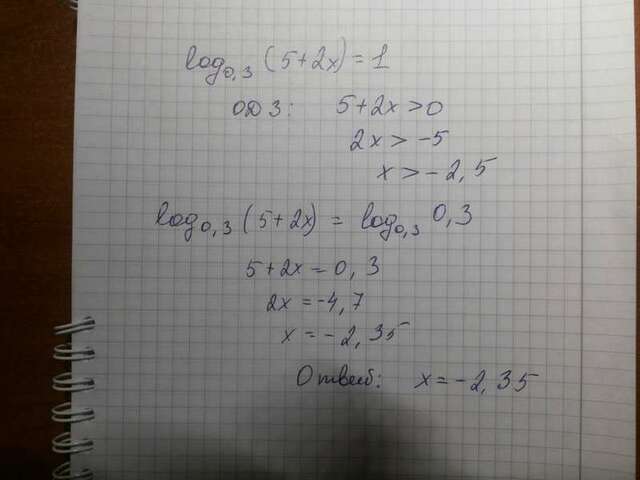 log₀,₃ (5+2x) = 1
ОДЗ: 5+2x > 0
2x > -5
x > -2,5
log₀,₃ (5+2x) = log₀,₃ 0,3
5+2x = 0,3
2x = -4,7
x = -2,35
Ответ: x = -2,35